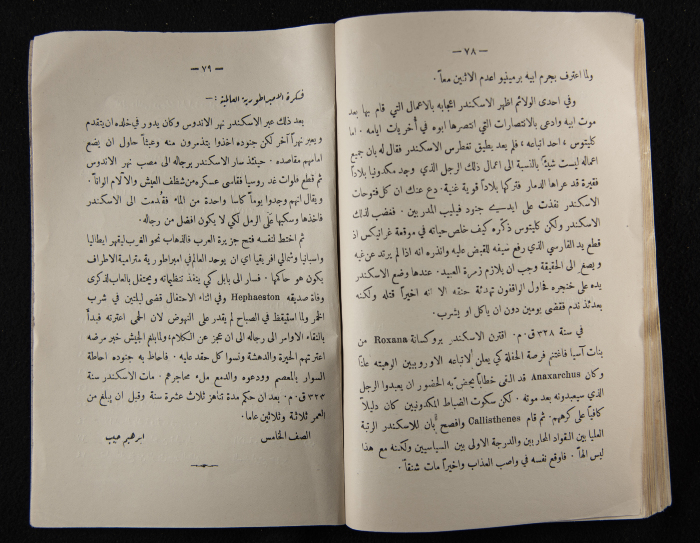 — ٧٨ —
ولما اعترف بجرم ابيه برمينيو اعدم الاثنين معاً .
وفي احدى الولائم اظهر الاسكندر اعجابه بالاعمال التي قام بها بعد
موت ابيه وادعى بالانتصارات التي انتصرها ابوه في أخريات ايامه . اما
كليتوس ، احد اتباعه ، فلم يعد يطيق تغطرس الاسكندر فقال له بان جميع
اعماله ليست شيئاً بالنسبة الى اعمال ذلك الرجل الذي وجد مكدونيا بلاداً
فقيرة قد عراها الدمار فتركها بلاداً قوية غنية . دع عنك ان كل فتوحات
الاسكندر نفذت على ايدي جنود فيليب المدربين . فغضب لذلك
الاسكندر ولكن كليتوس ذكّره كيف خلص حياته في موقعة غرانيكس اذ
قطع يد الفارسي الذي رفع سيفه للقبض عليه وانذره انه اذا لم يرتد عن غيه
ويصغر الى الحقيقة وجب ان يلازم زمرة العبيد . عندها وضع الاسكندر
يده على خنجره فحاول الواقفون تهدئة حنقه الا انه اخيراً قتله ولكنه
بعدئذ ندم فقضى يومين دون ان ياكل او يشرب .
في سنة ٣٢٨ ق . م . اقترن الاسكندر بروكسانة Roxana من
بنات آسيا فاغتنم فرصة الحفلة كي يعلن لاتباعه الاوروبيين الوهيته علناً
وكان Anaxarchus قد القى خطاباً يحض به الحضور ان يعبدوا الرجل
الذي سيعبدونه بعد موته . لكن سكوت الضباط المكدونيين كان دليلاً
كافياً على كرههم . ثم قام Callisthenes وافصح بان للاسكندر الرتبة
العليا بين القواد المحاربين والدرجة الاولى بين السياسيين ولكنه مع هذا
ليس الهاً . فاوقع نفسه في واصب العذاب واخيراً مات شنقاً .
— ٧٩ —
فكرة الامبراطورية العالمية : —
بعد ذلك عبر الاسكندر نهر الاندوس وكان يدور في خلده ان يتقدم
ويعبر نهراً آخر لكن جنوده اخذوا يتذمرون منه وعبثاً حاول ان يضع
امامهم مقاصده . حينئذ سار الاسكندر برجاله الى مصب نهر الاندوس
ثم قطع فلوات غد روسيا فقاسى عسكره من شظف العيش والآلام الواناً .
ويقال انهم وجدوا يوماً كاسا واحدة من الماء فقُدمت الى الاسكندر
فاخذها وسكبها على الرمل لكي لا يكون افضل من رجاله .
ثم اختط لنفسه فتح جزيرة العرب فالذهاب نحو الغرب ليقهر ايطاليا
واسبانيا وشمالي افريقيا اي ان يوحد العالم في امبراطورية مترامية الاطراف
يكون هو حاكمها . فسار الى بابل كي ينفذ تنظيماته ويحتفل بالعاب لذكرى
وفاة صديقه Hephaeston وفي اثناء الاحتفال قضى ليلتين في شرب
الخمر ولما استيقظ في الصباح لم يقدر على النهوض لان الحمى اعترته فبدأ
بالقاء الاوامر الى رجاله الى ان عجز عن الكلام . ولما بلغ الجيش خبر مرضه
اعترتهم الحيرة والدهشة ونسوا كل حقد عليه . فاحاط به جنوده احاطة
السوار بالمعصم وودعوه والدمع ملء محاجرهم . مات الاسكندر سنة
٣٢٣ ق . م . بعد ان حكم مدة تناهز ثلاث عشرة سنة وقبل ان يبلغ من
العمر ثلاثة وثلاثين عاما .
الصف الخامس ابراهيم حبيب